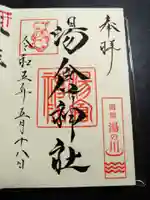 奉拝
湯倉神社
令和五年五月十八日
函館
湯の川